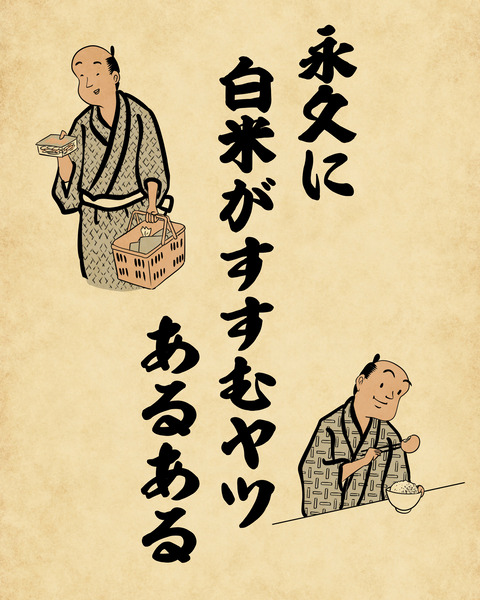 永久に
白米がすすむヤツ
あるある